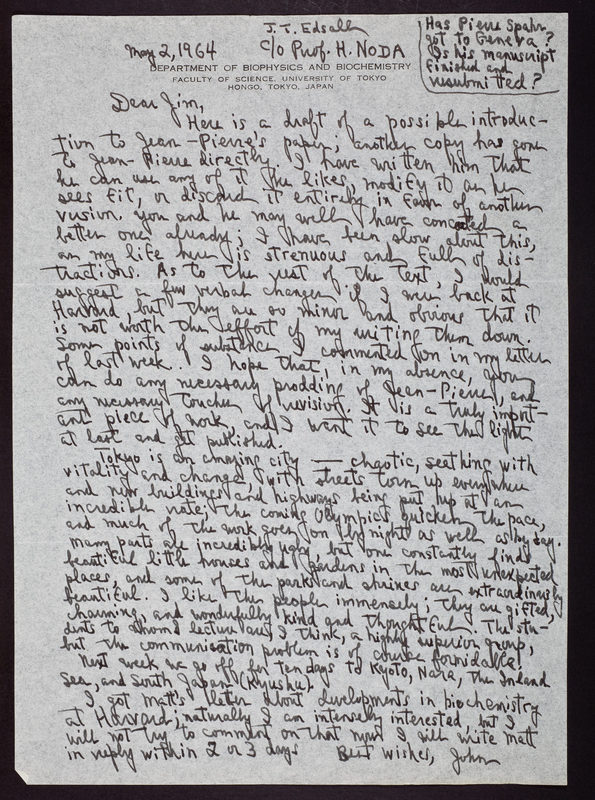 J. T. Edsall
May 2, 1964 c/o Prof. H. NODA
DEPARTMENT OF BIOPHYSICS AND BIOCHEMISTRY
FACULTY OF SCIENCE, UNIVERSITY OF TOKYO
HONGO, TOKYO, JAPAN
Has Pierre Spahr
got to Geneva?
Is his manuscript
finished and
resubmitted?
Dear Jim,
Here is a draft of a possible introduc-
tion to Jean-Pierre's paper; another copy has gone
to Jean-Pierre directly. I have written him that
he can use any of it he likes, modify it as he
sees fit, or discard it entirely in favor of another
version. You and he may well have concocted a
better one already; I have been slow about this,
as my life here is strenuous and full of dis-
tractions. As to the rest of the text, I would
suggest a few verbal changes if I were back at
Harvard, but they are so minor and obvious that it
is not worth the effort of my writing them down.
Some points of substance I commented on in my letter
of last week. I hope that, in my absence, you
can do any necessary prodding of Jean-Pierre, and
any necessary touches of revision. It is a truly import-
ant piece of work, and I want it to see the light
at last and get published.
Tokyo is an amazing city — chaotic, seething with
vitality and change, with streets torn up everywhere
and new buildings and highways being put up at an
incredible rate; the coming Olympics quicken the pace,
and much of the work goes on by night as well as by day.
Many parts are incredibly ugly, but one constantly finds
beautiful little houses and gardens in the most unexpected
places, and some of the parks and shrines are extraordinarily
beautiful. I like the people immensely; they are gifted,
charming, and wonderfully kind and thoughtful. The stu-
dents to whom I lecture are, I think, a highly superior group,
but the communication problem is of course formidable.
Next week we go off for ten days to Kyoto, Nara, the Inland
Sea, and South Japan (Kyushu).
I got Matt's letter about developments in biochemistry
at Harvard; naturally I am intensely interested, but I
will not try to comment on that now. I will write Matt
in reply within 2 or 3 days Best wishes, John